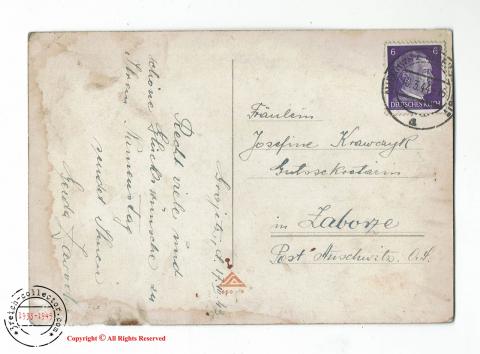 Recht viele und
schöne Glückwünsche zu
Ihrem Namenstag
sendet Ihnen
Gerda
6 6
DEUTSCHES REICH
a
Fräulein
Josefine Krawczyk
Gutssekretärin
in Zaborze
Post Auschwitz O.S.
reich-collector.com
1933-1945
Copyright © All Rights Reserved